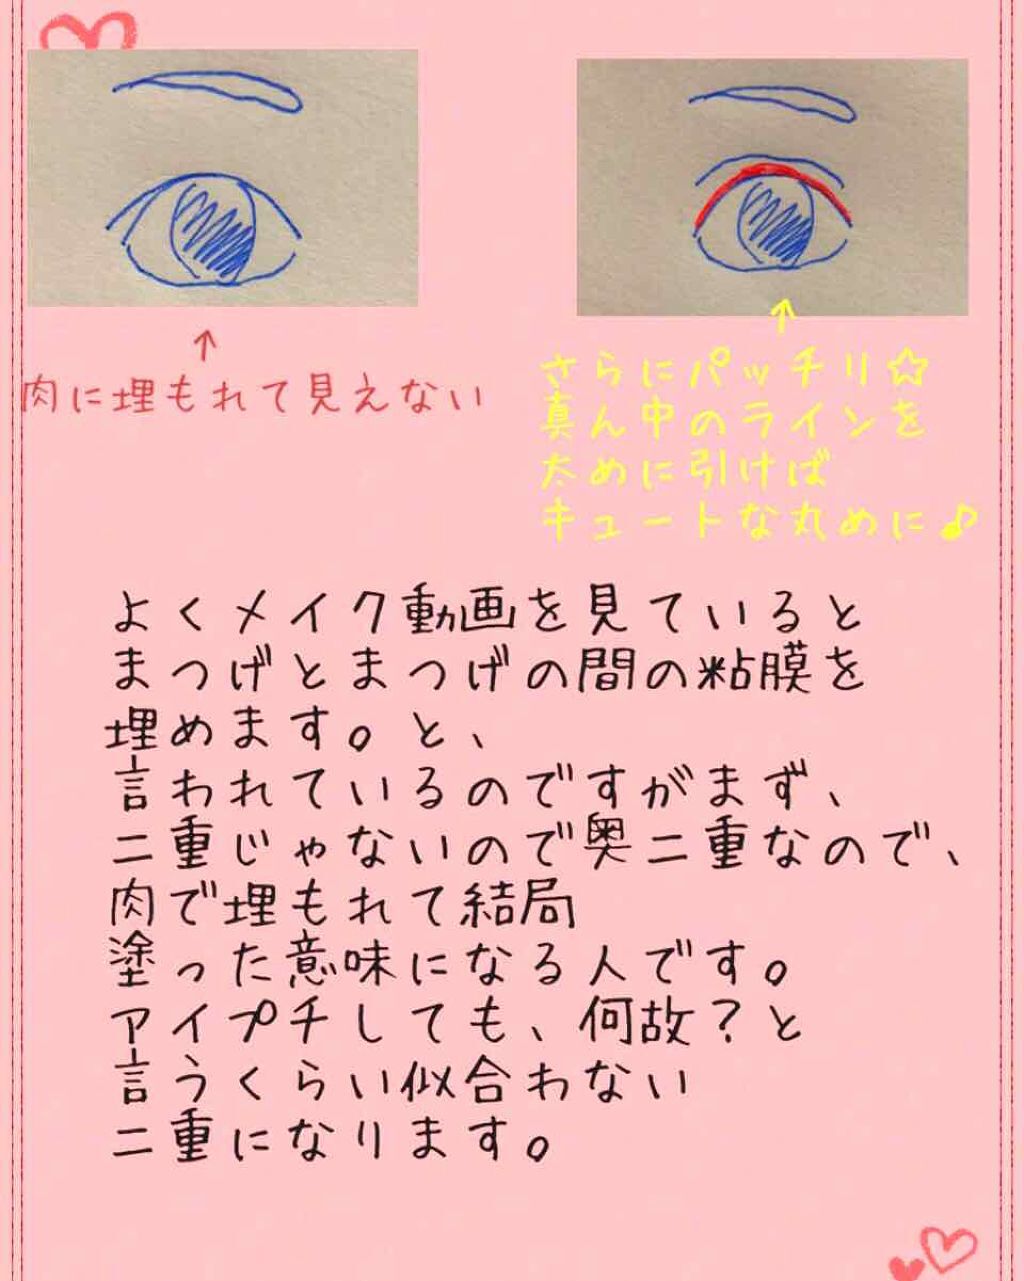 ↑
肉に埋もれて見えない
↑
さらにパッチリ☆
真ん中のラインを
太めに引けば
キュートな丸めに♪
よくメイク動画を見ていると
まつげとまつげの間の粘膜を
埋めます。と、
言われているのですがまず、
二重じゃないので奥二重なので、
肉で埋もれて結局
塗った意味になる人です。
アイプチしても、何故?と
言うくらい似合わない
二重になります。